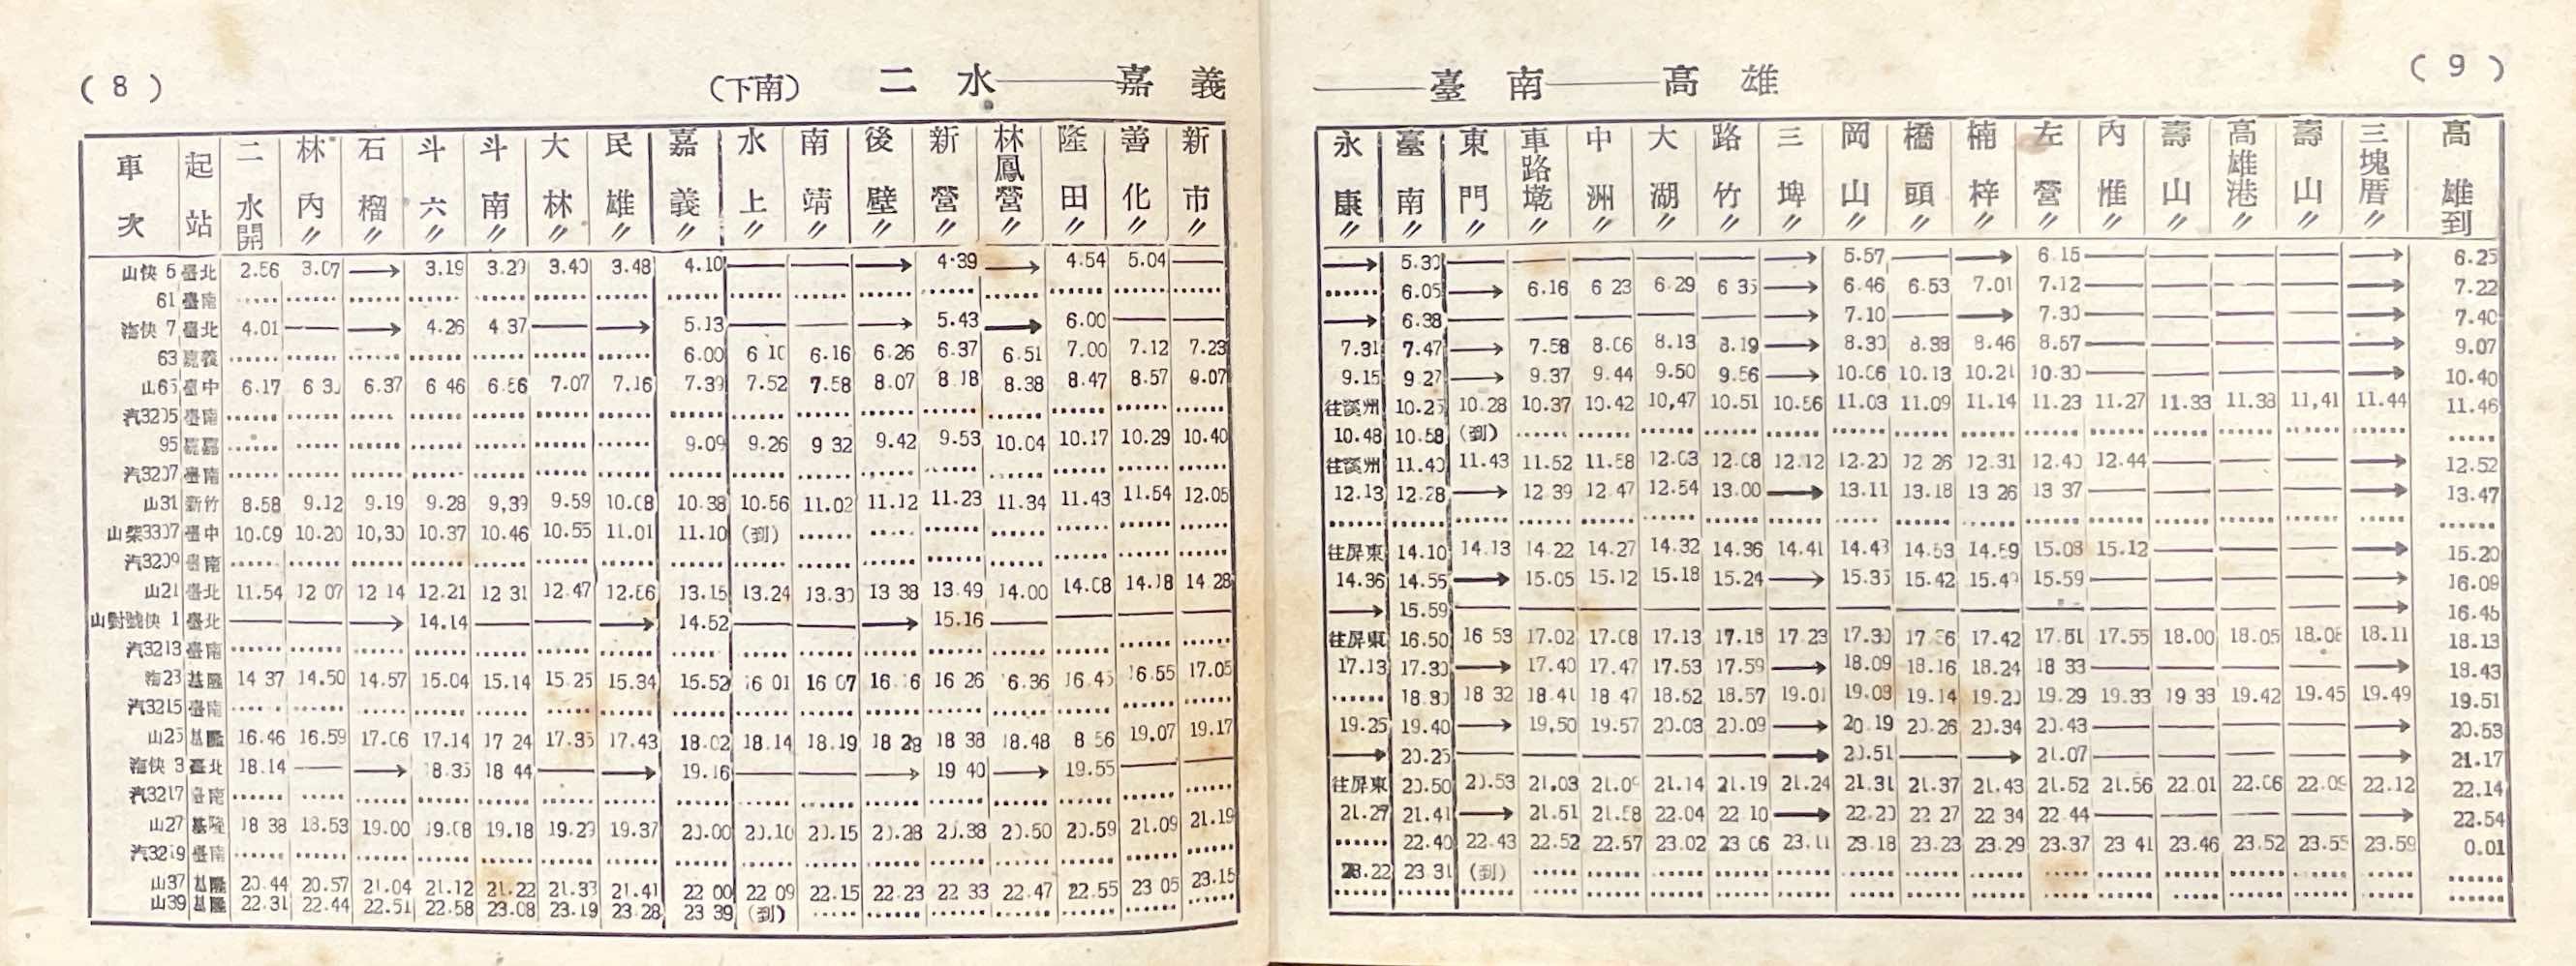 ( 8 ) (下南) 二水——嘉義
——臺南——高雄 ( 9 )
車次 起站 二水開 林內〃 石榴〃 斗六〃 斗南〃 大林〃 民雄〃 嘉義〃 水上〃 南靖〃 後壁〃 新營〃 林鳳營〃 隆田〃 善化〃 新市〃 永康〃 臺南〃 東門〃 車路墘〃 中洲〃 大湖〃 路竹〃 三埤〃 岡山〃 橋頭〃 楠梓〃 左營〃 內惟〃 壽山〃 高雄港〃 壽山〃 三塊厝〃 高雄到
山快 5 臺北 2.56 3.07 → 3.19 3.29 3.40 3.48 4.10 — — → 4.39 → 4.54 5.04 — → 5.30 — — — — — → 5.57 — → 6.15 — — — — → 6.25
61 臺南 …… …… …… …… …… …… …… …… …… …… …… …… …… …… …… …… …… 6.05 → 6.16 6 23 6.29 6 35 → 6.46 6.53 7.01 7.12 — — — — → 7.22
海快 7 臺北 4.01 — → 4.26 4 37 — → 5.13 — — → 5.43 → 6.00 — — → 6.38 — — — — — → 7.10 — → 7.30 — — — — → 7.40
63 嘉義 …… …… …… …… …… …… …… 6.00 6 10 6.16 6.26 6.37 6.51 7.00 7.12 7.23 7.31 7.47 → 7.58 8.06 8.13 8.19 → 8.30 8.38 8.46 8.57 — — — — → 9.07
山65 臺中 6.17 6 30 6.37 6 46 6.56 7.07 7.16 7.39 7.52 7.58 8.07 8.18 8.38 8.47 8.57 9.07 9.15 9.27 → 9.37 9.44 9.50 9.56 → 10.06 10.13 10.21 10.30 — — — — → 10.40
汽3205 臺南 …… …… …… …… …… …… …… …… …… …… …… …… …… …… …… …… 往溪州 10.25 10.28 10.37 10.42 10,47 10.51 10.56 11.03 11.09 11.14 11.23 11.27 11.33 11.38 11,41 11.44 11.46
95 …… …… …… …… …… …… …… 9.09 9.26 9 32 9.42 9.53 10.04 10.17 10.29 10.40 10.48 10.58 (到) …… …… …… …… …… …… …… …… …… …… …… …… …… …… ……
汽3207 臺南 …… …… …… …… …… …… …… …… …… …… …… …… …… …… …… …… 往溪州 11.40 11.43 11.52 11.58 12.03 12.08 12.12 12.20 12 26 12.31 12.40 12.44 — — — → 12.52
山31 新竹 8.58 9.12 9.19 9.28 9,39 9.59 10.08 10.38 10.56 11.02 11.12 11.23 11.34 11.43 11.54 12.05 12.13 12.28 → 12 39 12.47 12.54 13.00 → 13.11 13.18 13 26 13 37 — — — — → 13.47
山柴3307 臺中 10.09 10.20 10,30 10.37 10.46 10.55 11.01 11.10 (到) …… …… …… …… …… …… …… …… …… …… …… …… …… …… …… …… …… …… …… …… …… …… …… …… ……
汽3209 臺南 …… …… …… …… …… …… …… …… …… …… …… …… …… …… …… …… 往屏東 14.10 14.13 14.22 14.27 14.32 14.36 14.41 14.48 14.53 14.59 15.08 15.12 — — — → 15.20
山21 臺北 11.54 12 07 12 14 12.21 12 31 12.47 12.56 13.15 13.24 13.30 13 38 13.49 14.00 14.08 14.18 14 28 14.36 14.55 → 15.05 15.12 15.18 15.24 → 15.35 15.42 15.49 15.59 — — — — → 16.09
山對號快 1 臺北 — — → 14.14 — — → 14.52 — — → 15.16 — — — — → 15.59 — — — — — — — — — — — — — — → 16.45
汽3213 臺南 …… …… …… …… …… …… …… …… …… …… …… …… …… …… …… …… 往屏東 16.50 16 53 17.02 17.08 17.13 17.18 17.23 17.30 17.36 17.42 17.51 17.55 18.00 18.05 18.08 18.11 18.13
海23 基隆 14 37 14.50 14.57 15.04 15.14 15.25 15.34 15.52 16 01 16 07 16 16 16 26 16.36 16.45 16.55 17.05 17.13 17.30 → 17.40 17.47 17.53 17.59 → 18.09 18.16 18.24 18 33 — — — — → 18.43
汽3215 臺南 …… …… …… …… …… …… …… …… …… …… …… …… …… …… …… …… …… 18.30 18 32 18.41 18 47 18.52 18.57 19.01 19.09 19.14 19.20 19.29 19.33 19 38 19.42 19.45 19.49 19.51
山25 基隆 16.46 16.59 17.06 17.14 17 24 17.35 17.43 18.02 18.14 18.19 18 28 18 38 18.48 8 56 19,07 19.17 19.25 19.40 → 19,50 19.57 20.03 20.09 → 20.19 20.26 20.34 20.43 — — — — → 20.53
海快 3 臺北 18.14 — → 18.35 18 44 — → 19.16 — — → 19 40 → 19.55 — — → 20.25 — — — — — → 20.51 — → 21.07 — — — — → 21.17
汽3217 臺南 …… …… …… …… …… …… …… …… …… …… …… …… …… …… …… …… 往屏東 20.50 20.53 21,03 21.09 21.14 21.19 21.24 21.31 21.37 21.43 21.52 21.56 22.01 22.06 22.09 22.12 22.14
山27 基隆 18 38 18.53 19.00 19.08 19.18 19.29 19.37 20.00 20.10 20.15 20.28 20.38 20.50 20.59 21.09 21.19 21.27 21.41 → 21.51 21.58 22.04 22 10 → 22.20 22 27 22 34 22 44 — — — — → 22.54
汽3219 臺南 …… …… …… …… …… …… …… …… …… …… …… …… …… …… …… …… …… 22.40 22.43 22.52 22.57 23.02 23 06 23.11 23.18 23.23 23.29 23.37 23 41 23.46 23.52 23.55 23.59 0.01
山37 基隆 20.44 20.57 21.04 21.12 21.22 21.33 21.41 22 00 22 09 22.15 22.23 22 33 22.47 22.55 23 05 23.15 23.22 23 31 (到) …… …… …… …… …… …… …… …… …… …… …… …… …… …… ……
山39 基隆 22.31 22.44 22.51 22.58 23.08 23.19 23.28 23 39 (到) …… …… …… …… …… …… …… …… …… …… …… …… …… …… …… …… …… …… …… …… …… …… …… …… ……